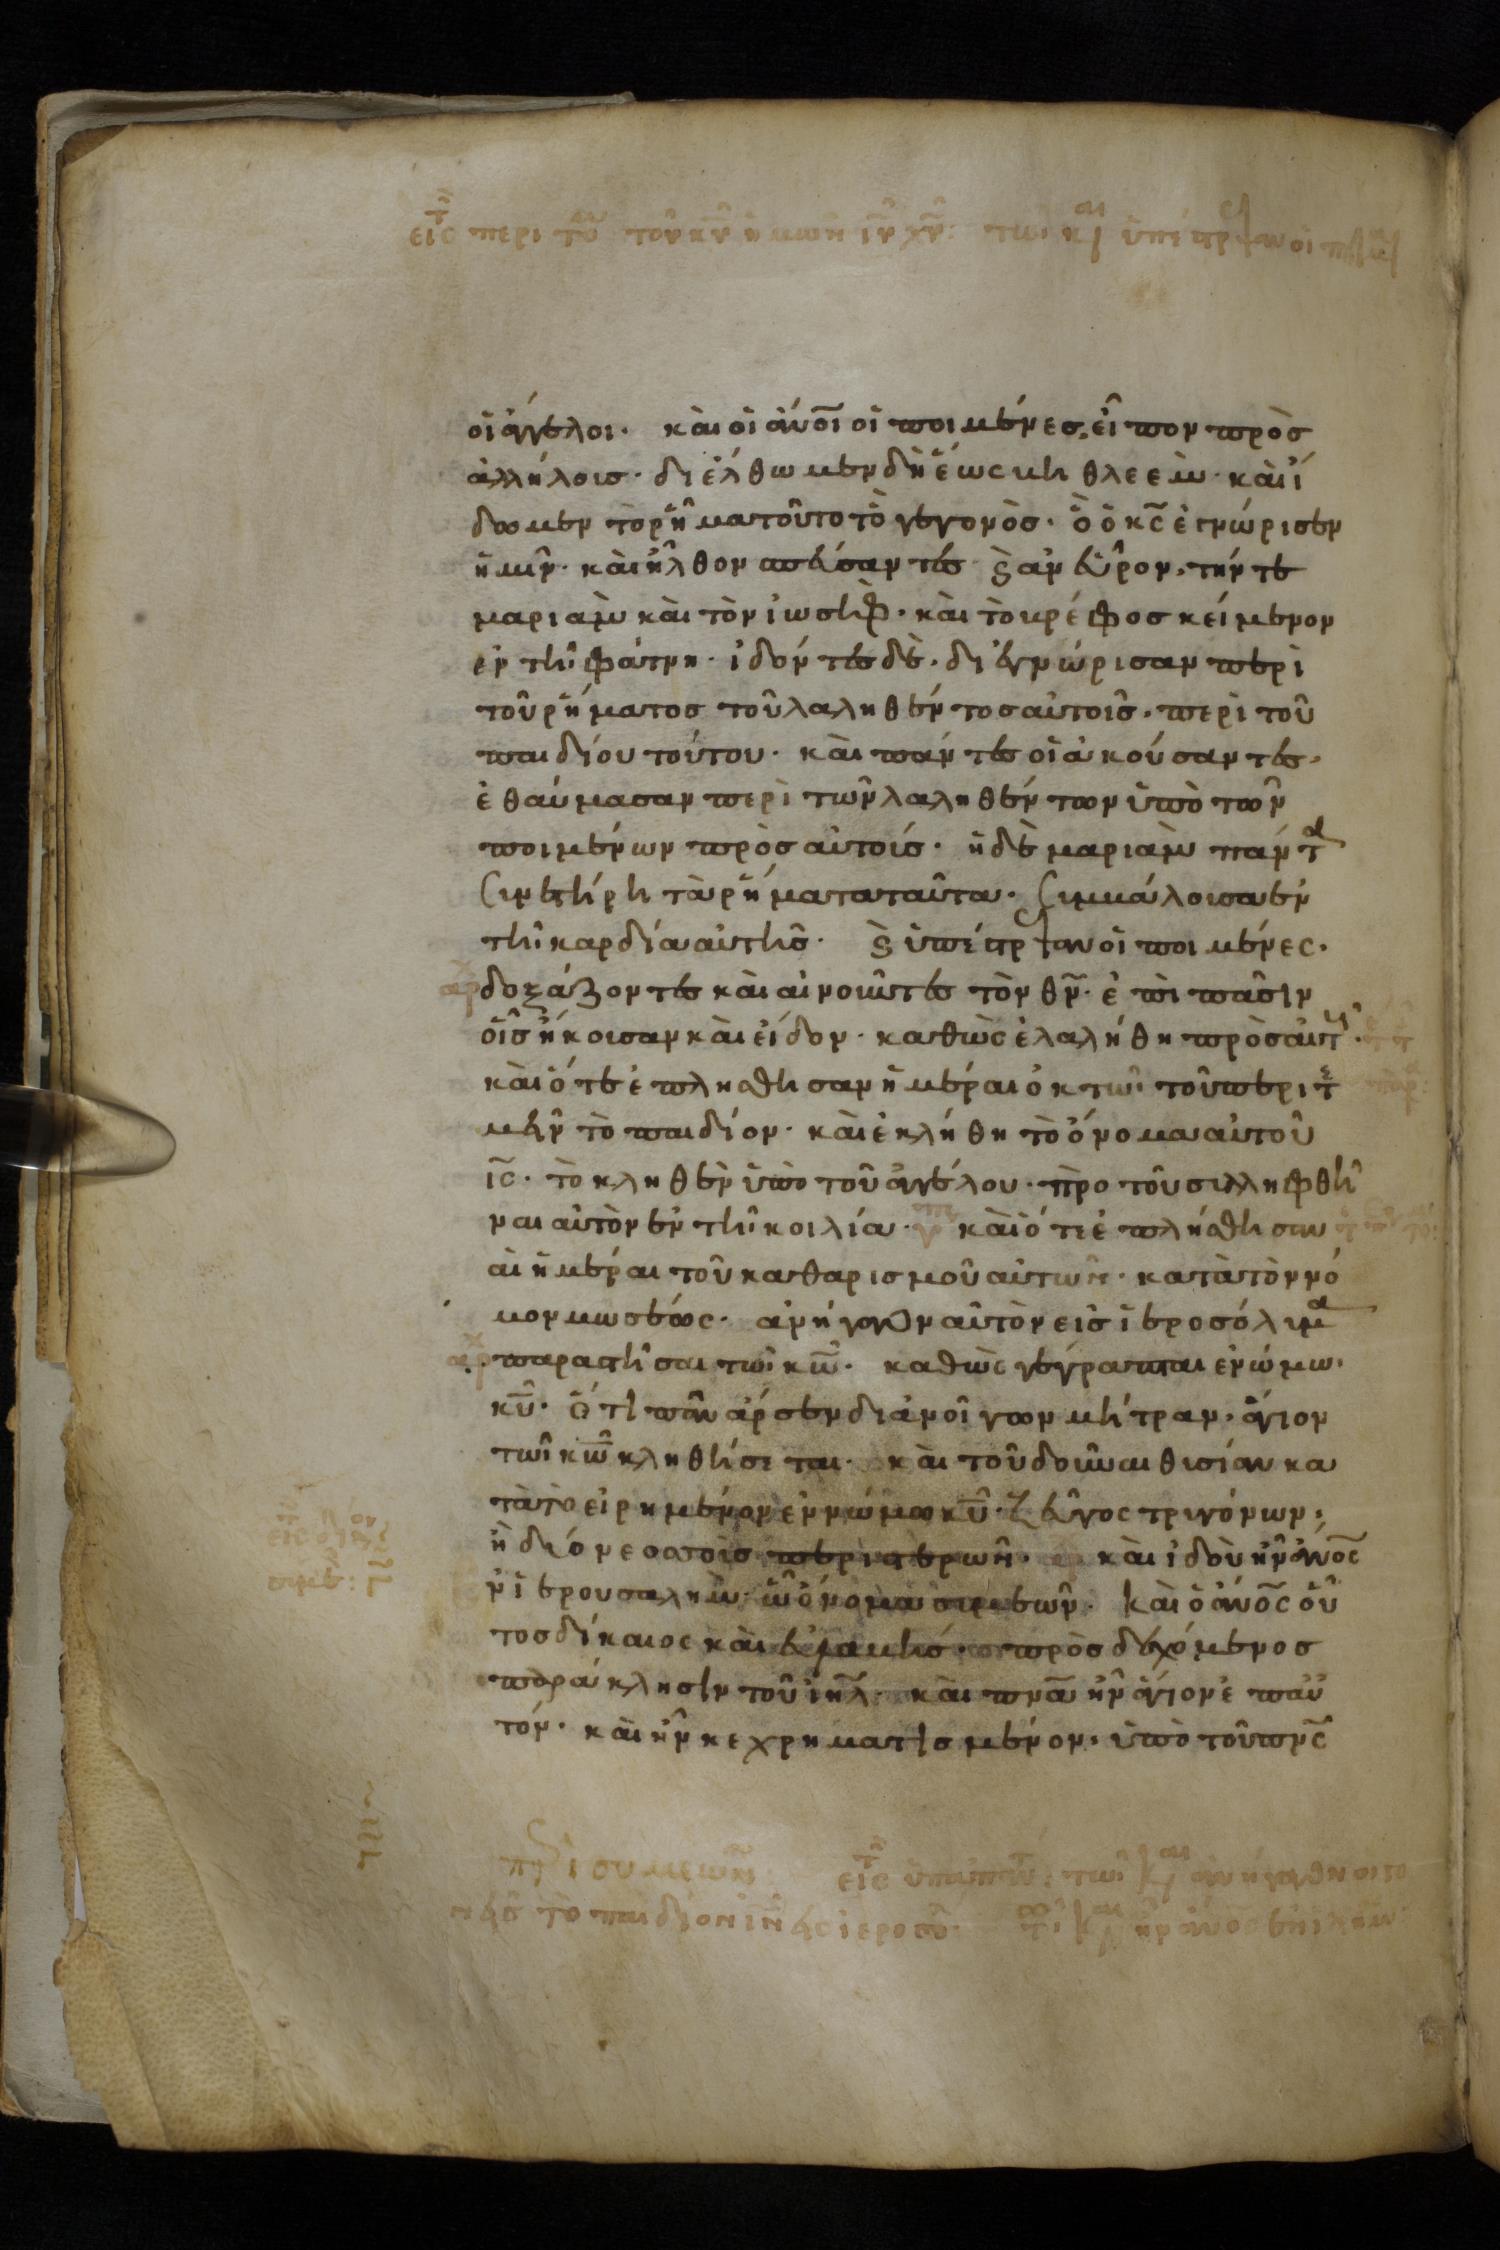 οἱ ἄγγελοι· καὶ οἱ ἀνοῖ οἱ ποιμένες, εἶπον πρὸς
ἀλλήλους· διέλθωμεν δὴ ἕως βηθλεὲμ· καὶ ἴ
δωμεν τὸ ῥῆμα τοῦτο τὸ γεγονὸς· ὃ ὁ κς ἐγνώρισεν
ἡμῖν· καὶ ἦλθον σπεύσαντες· καὶ ἀνεῦρον, τήν τε
μαριὰμ καὶ τὸν ἰωσὴφ· καὶ τὸ βρέφος κείμενον
ἐν τῆ φάτνη· ἰδόντες δὲ, διεγνώρισαν περὶ
τοῦ ῥήματος τοῦ λαληθέντος αὐτοῖς, περὶ τοῦ
παιδίου τούτου· καὶ πάντες οἱ ἀκούσαντες,
ἐθαύμασαν περὶ τῶν λαληθέντων ὑπὸ τῶν
ποιμένων πρὸς αὐτούς· ἡ δὲ μαριὰμ πάντα
συνετήρη τὰ ῥήματα ταῦτα· συμβάλουσα ἐν
τῆ καρδία αὐτῆς· καὶ ὑπέστρεψαν οἱ ποιμένες·
δοξάζοντες καὶ αἰνοῦντες τὸν θν· ἐπὶ πᾶσιν
οἷς ἤκουσαν καὶ εἶδον· καθὼς ἐλαλήθη πρὸς αὐτ·
καὶ ὅτε ἐπλήσθησαν ἡμέραι ὀκτὼ τοῦ περιτε
μεῖν τὸ παιδίον· καὶ ἐκλήθη τὸ ὄνομα αὐτοῦ
ις· τὸ κληθὲν ὑπὸ τοῦ ἀγγέλου· πρὸ τοῦ συλληφθῆ
ναι αὐτὸν ἐν τῆ κοιλία· καὶ ὅτε ἐπλήσθησαν
αἱ ἡμέραι τοῦ καθαρισμοῦ αὐτῶν· κατὰ τὸν νό
μον μωσέως· ἀνήγαγον αὐτὸν εἰς ἱεροσόλυμα
παραστῆσαι τῶ κω· καθὼς γέγραπται ἐν νώμω·
κυ· ὅτι πᾶν ἄρσεν διανοῖγων μήτραν· ἅγιον
τῶ κω κληθήσεται· καὶ τοῦ δοῦναι θυσίαν κα
τὰ τὸ εἰρημένον ἐν νώμω κυ· ζεῦγος τρυγόνων,
ἢ δύο νεοσσοὺς περιστερῶν· καὶ ἰδοὺ ἦν ἀνος
ἐν ἱερουσαλὴμ· ὧ ὄνομα συμεὼν· καὶ ὁ ἀνος οὗ
τος δίκαιος καὶ εὐλαβής· προσδεχόμενος
παράκλησιν τοῦ ιηλ· καὶ πνα ἦν ἅγιον ἐπ' αὐ
τόν· καὶ ἦν κεχρηματισμένον, ὑπὸ τοῦ πνς